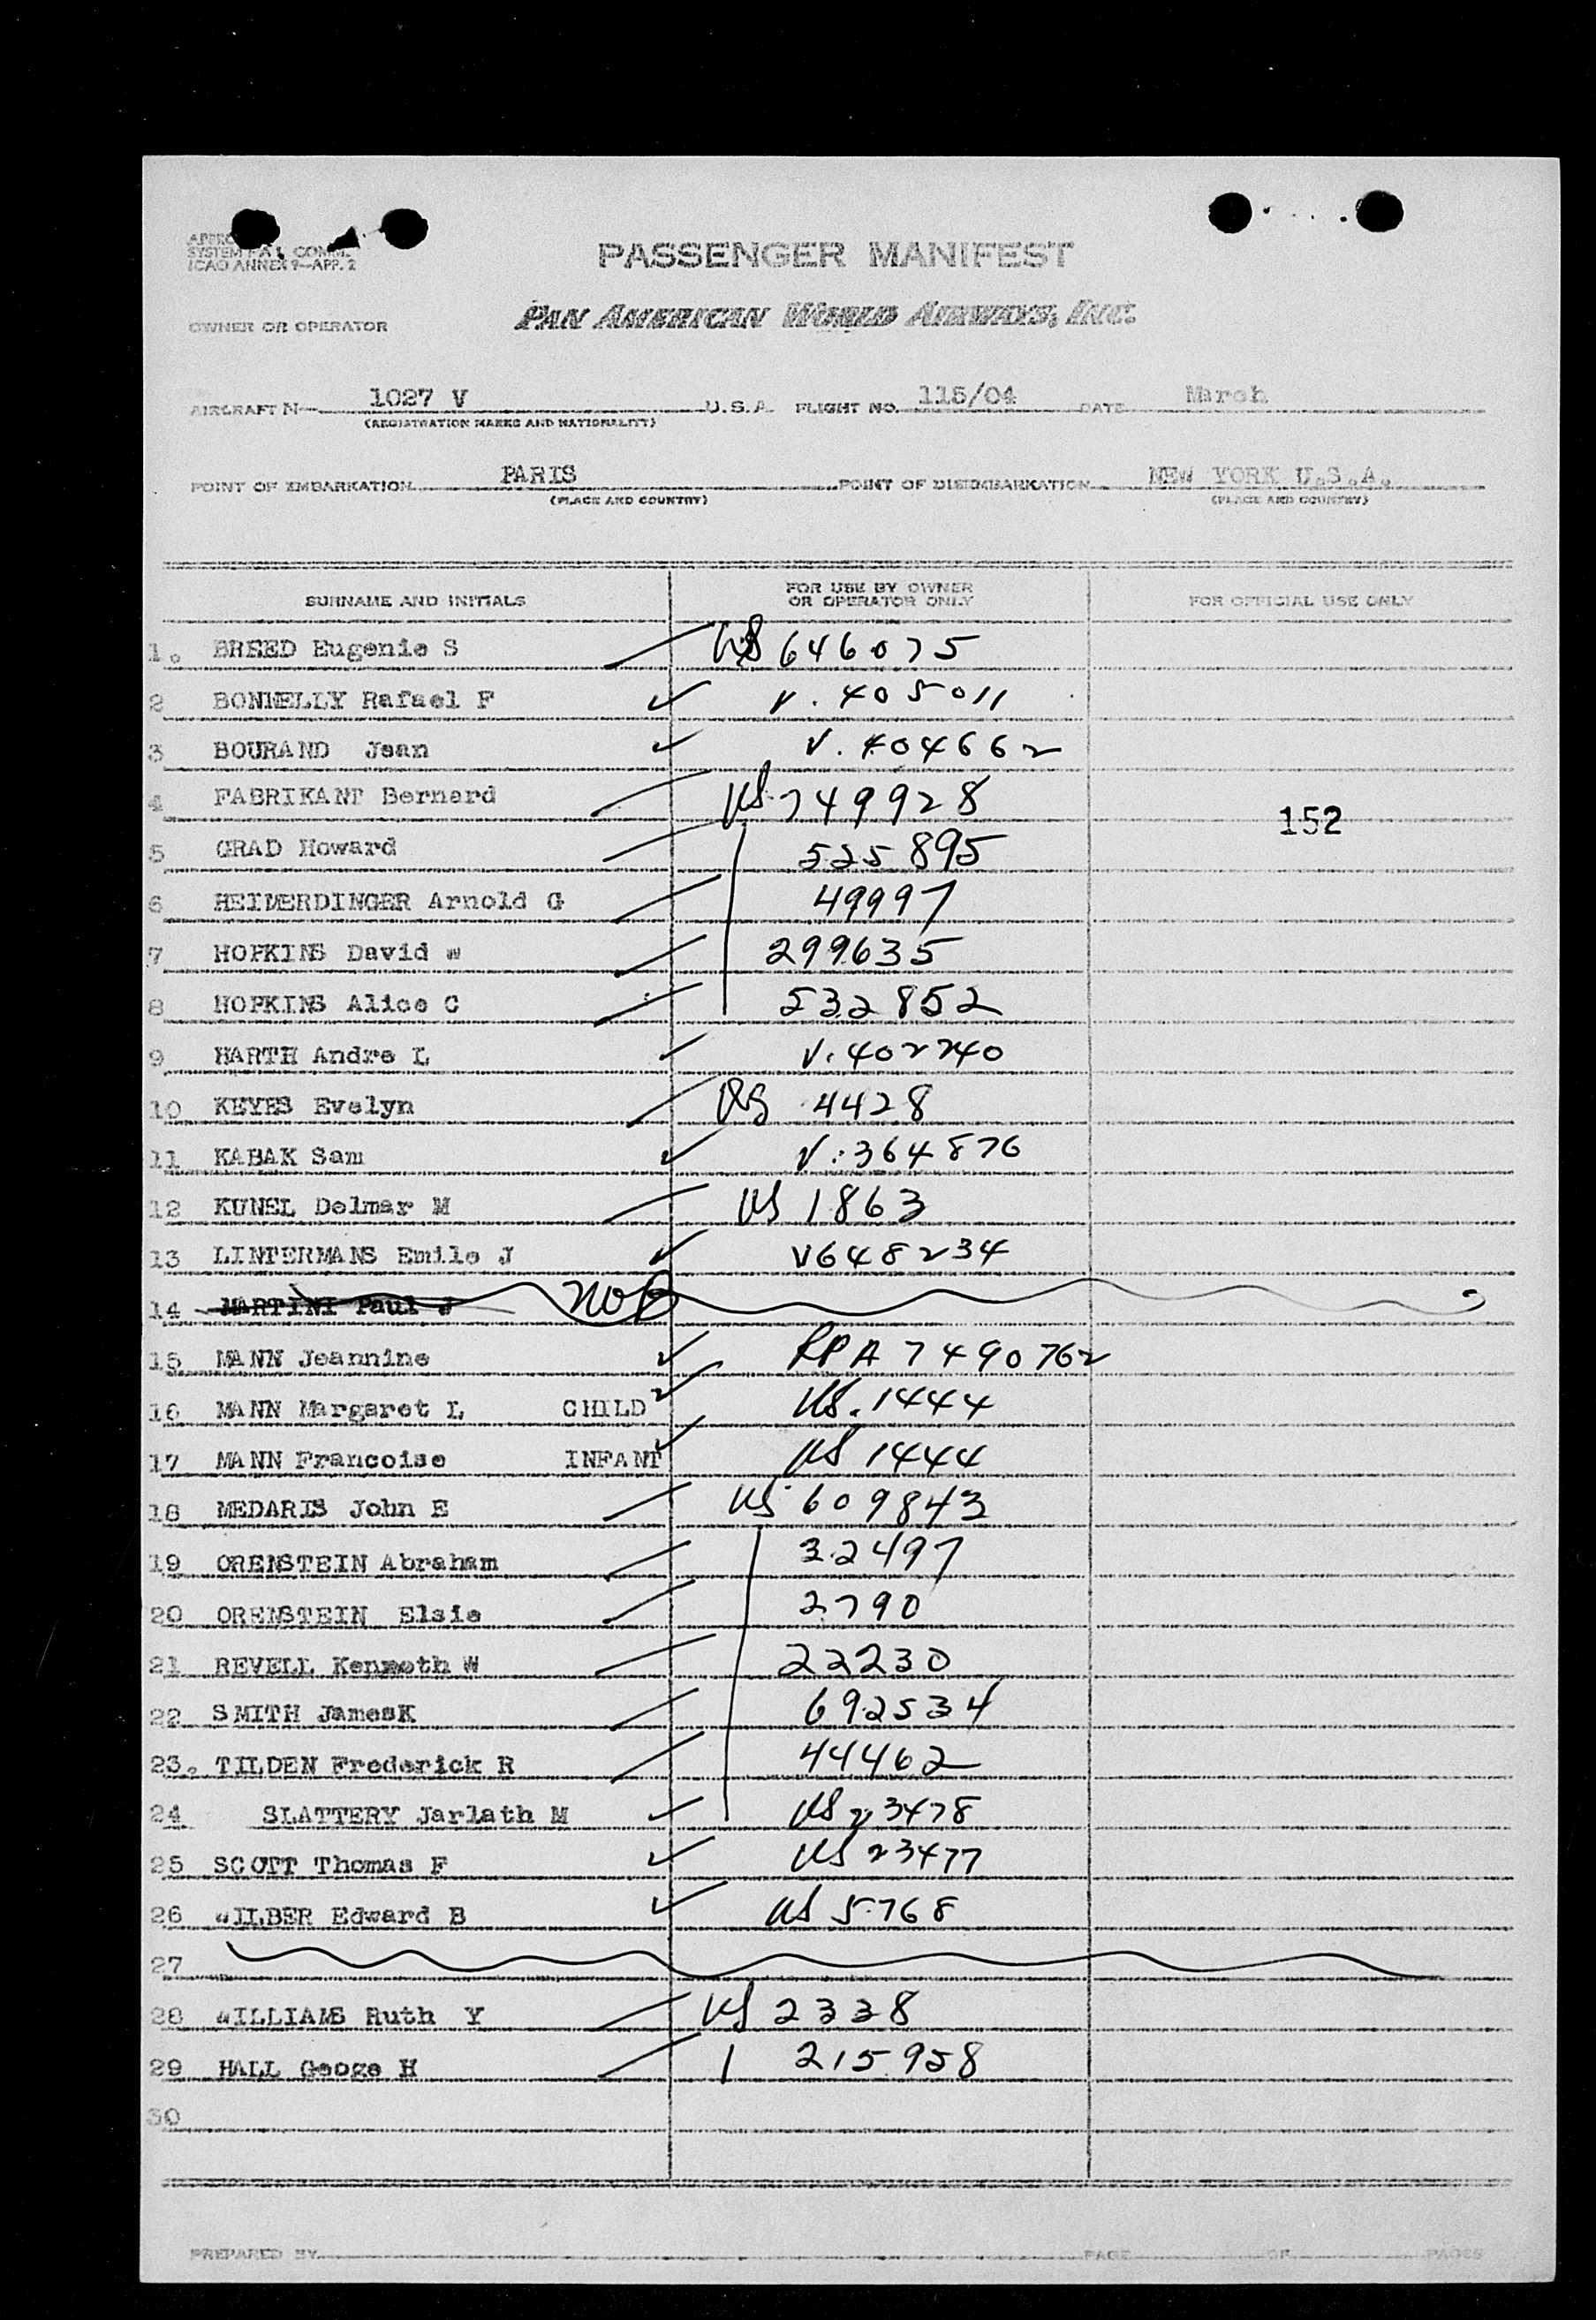 PASSENGER MANIFEST
SYSTEM
ICAO ANNEX 9—APP. 2
OWNER OR OPERATOR PAN AMERICAN WORLD AIRWAYS, INC.
AIRCRAFT N— 1027 V U.S.A. FLIGHT NO. 115/04 DATE March
(REGISTRATION MARKS AND NATIONALITY)
POINT OF EMBARKATION PARIS POINT OF DISEMBARKATION NEW YORK U.S.A.
(PLACE AND COUNTRY) (PLACE AND COUNTRY)
SURNAME AND INITIALS FOR USE BY OWNER OR OPERATOR ONLY FOR OFFICIAL USE ONLY
1. BREED Eugenie S US 646075
2 BONNELLY Rafael F V. 405011
3 BOURAND Jean V. 404662
4 FABRIKANT Bernard US 749928
152
5 GRAD Howard 525895
6 HEIMERDINGER Arnold G 49997
7 HOPKINS David W 299635
8 HOPKINS Alice C 532852
9 HARTH Andre L V. 402240
10 KEYES Evelyn US 4428
11 KABAK Sam V. 364876
12 KUNEL Delmar M US 1863
13 LINTERMANS Emile J V648234
14 MARTINI Paul J NOB
15 MANN Jeannine RPA 7490762
16 MANN Margaret L CHILD US. 1444
17 MANN Francoise INFANT US 1444
18 MEDARIS John E US 609843
19 ORENSTEIN Abraham 32497
20 ORENSTEIN Elsie 2790
21 REVELL Kenneth W 22230
22 SMITH JamesK 692534
23. TILDEN Frederick R 44462
24 SLATTERY Jarlath M US 23478
25 SCOTT Thomas F US 23477
26 WILBER Edward B US 5768
27
28 WILLIAMS Ruth Y US 2338
29 HALL Geoge H 215958
30
PREPARED BY PAGE OF PAGES